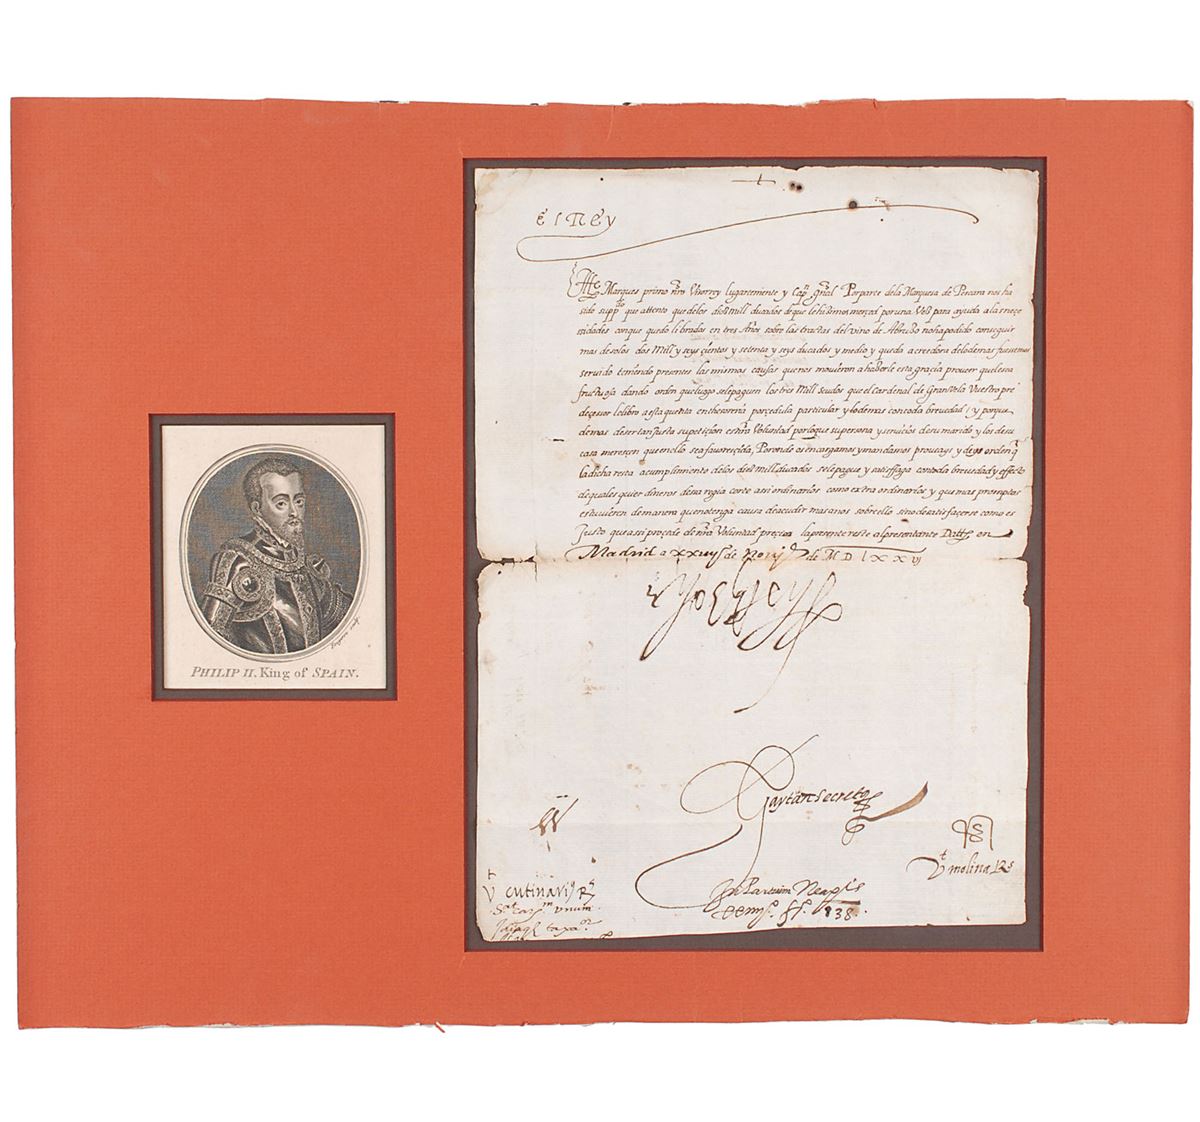 PHILIP II. King of SPAIN.
el Rey
Marques primo nr̃o Visorrey lugarteniente y Capn̄ gn̄al Por parte de la Marquesa de Pescara nos ha
sido supp.do que attento que de los diez mill ducados de que le hizimos merçed por una Vez para ayuda a la neçe
ssidades con que quedo librados en tres Años sobre las tractas del vino de Abruzo no ha podido conseguir
mas de solos dos Mill y seysçientos y setenta y seys ducados y medio y queda acreedora de lo demas fuessemos
servido teniendo presentes las mismas causas que nos movieron a haberle esta graçia proveer que le sea
fructuosa dando orden que luego se le paguen los tres Mill scudos que el Cardenal de Granvela Vuestro pre
deçessor le libro a esta quenta en thesoreria por çedula particular y lo demas con toda brevedad / y porque
demas de ser tan justa su petiçion es nr̃a Voluntad por lo que su persona y serviçios de su marido y los de su
casa mereçen que en ello sea favoresçida, Por ende os encargamos y mandamos proveays y deys orden q̃
la dicha resta a cumplimiento de los diez mill ducados se le pague y satisfaga con toda brevedad y effecto
de quales quier dineros dessa regia corte assi ordinarios como extra ordinarios y que mas promptos
estuvieren de manera que no tenga causa de acudir mas a nos sobre ello sino de satisfacerse como es
Justo que assi proçede de nr̃a Voluntad
la presente reste al presentante Datt. en
Madrid a xxviij de Nov.e de M D lxxvj
Yo el Rey
Gaytan secret.s
Vt molina Rs
Vt cutinarig Rs
In Partium Neaplis
838.